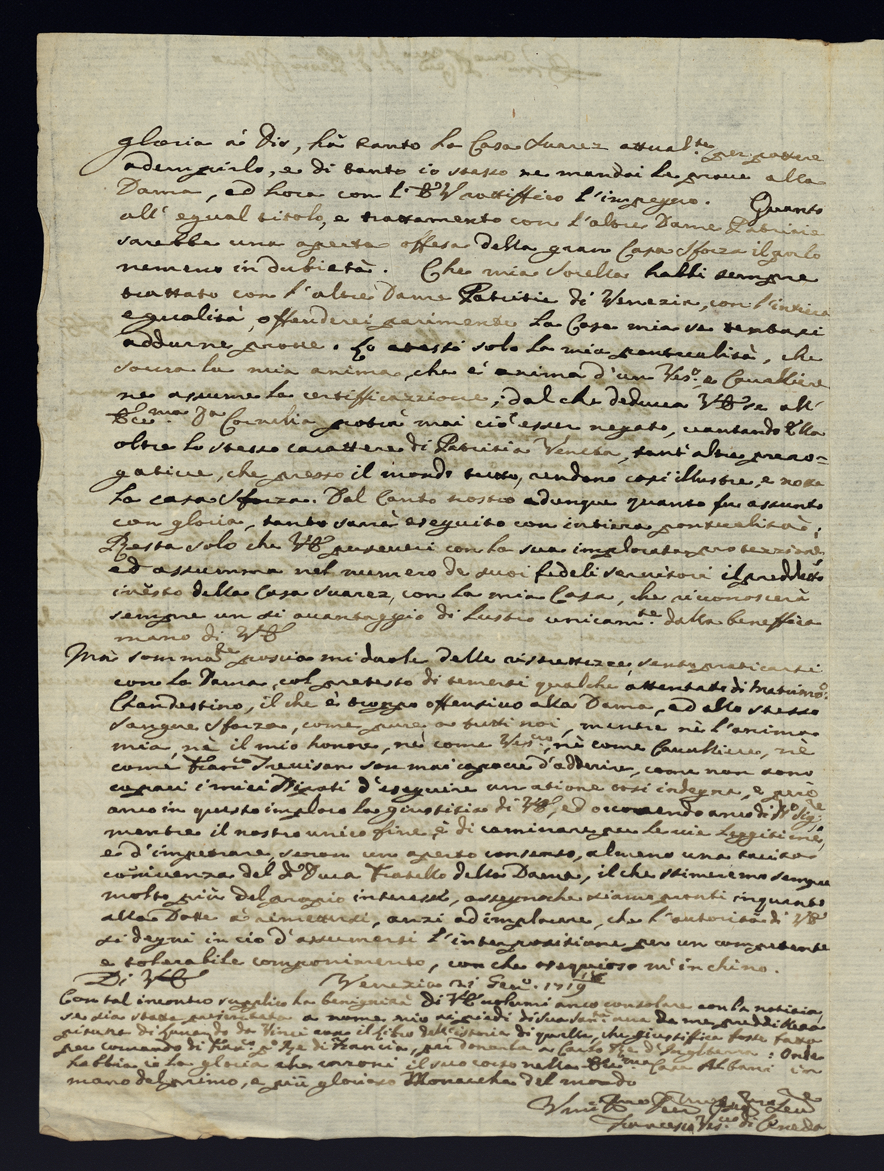 gloria à Dio, hà tanto la Casa Suarez attualte per potere
adempirlo, e di tanto io stesso ne mandai le prove alla
Dama, ed hora con l' rattiffico l'impegno. Quanto
all' egual titolo, e trattamento con l'altre Dame Patricie
sarebbe una aperta offesa della gran Casa Sforza il porlo
nemeno in dubietà. Che mia Sorella habbi sempre
trattato con l'altre Dame Patritie di Venezia, con l'intiera
egualità, offenderei parimente la Casa mia se tentassi
addurne prove. Lo attesti solo la mia pontualità, che
soura la mia anima, che è anima d'un Vesco. e Cavalliere
ne assume la certifficazione; dal che deduca VE se all'
Cornelia potrà mai ciò esser negato, vantando Ella
oltre lo stesso carattere di Patritia Veneta, tant'altre prero=
gative, che presso il mondo tutto, rendono così illustre, e nota
la casa Sforza. Dal Canto nostro adunque quanto fu assunto
con gloria, tanto sarà eseguito con intiera pontualità;
Resta solo che VE perseveri con la sua implorata protezzione,
ed assumma nel numero de suoi fedeli servitori il predetto
della Casa Suarez, con la mia Casa, che riconoscerà
sempre un sì avantaggio di Lustro unicamte dalla beneffica
mano di VE
Mà sommate poscia mi duole delle ristrettezze, sento praticarsi
con la Dama, col pretesto di temersi qualche attentato di matrimo:
Clandestino, il che è troppo offensivo alla Dama, ed allo stesso
Sangue Sforza, come pure a tutti noi, mentre nè l'anima
mia, nè il mio honore, nè come Vesco, nè come Cavalliere, nè
come Franco Trevisan son mai capace d'adderire, come non sono
capaci i miei Nipoti d'eseguire un azione così indegna, e però
anco in questo imploro la giustitia di VE, ed occorrendo anco di
mentre il nostro unico fine, è di caminare per le vie leggitime,
e d'impetrare, senon un aperto consenso, almeno una tacita
conivenza del Duca Fratello della Dama, il che stimeremo sempre
molto più del proprio interesse, assegnoche siamo pronti inquanto
alla Dotte à rimettersi, anzi ad implorare, che l'autorità di VE
si degni in ciò d'assumersi l'interpositione per un competente
e tolerabile componimento, con che ossequioso m'inchino.
Di VE Venezia 21 Gen. 1719
Con tal incontro supplico la benignità di VE volermi anco consolare con la notitia,
se sia stato presentata a nome mio ai piedi di Sua
pittura di Leonardo da Vinci con il libro dell'istoria di quella, che giustifica fosse fatta
per comando di Franco po Re di Francia, poi donata a Carlo Re di Inghilterra: Onde
habbia io la gloria che coroni il suo corso nella Casa Albani in
mano del primo, e più glorioso Monarcha del mondo
Francesco Vesco di Ceneda